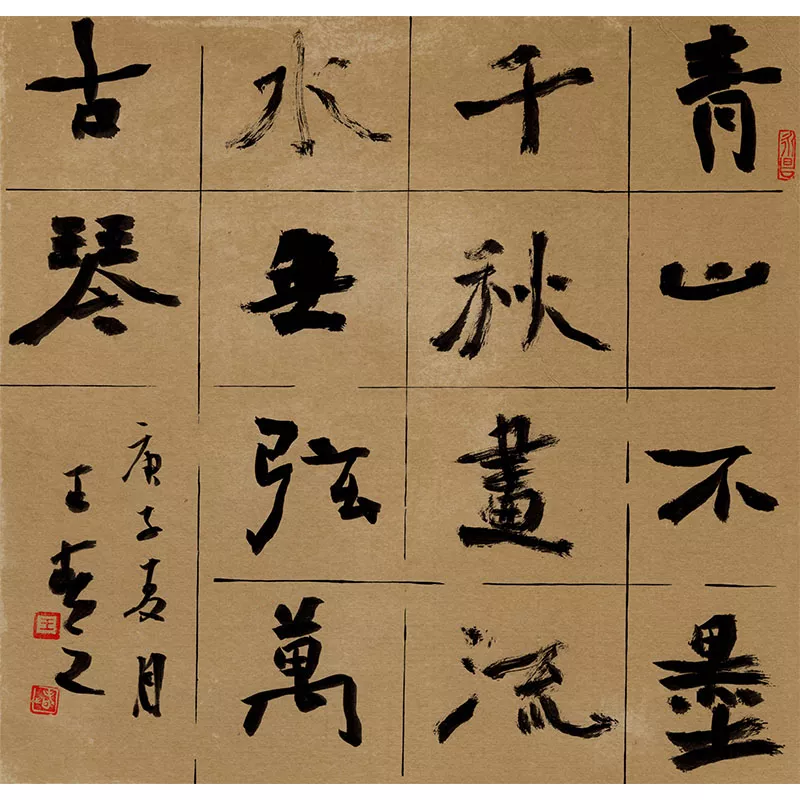 青山不墨
千秋畫流
水無弦萬
古琴
庚子夏月
王
永昌
王